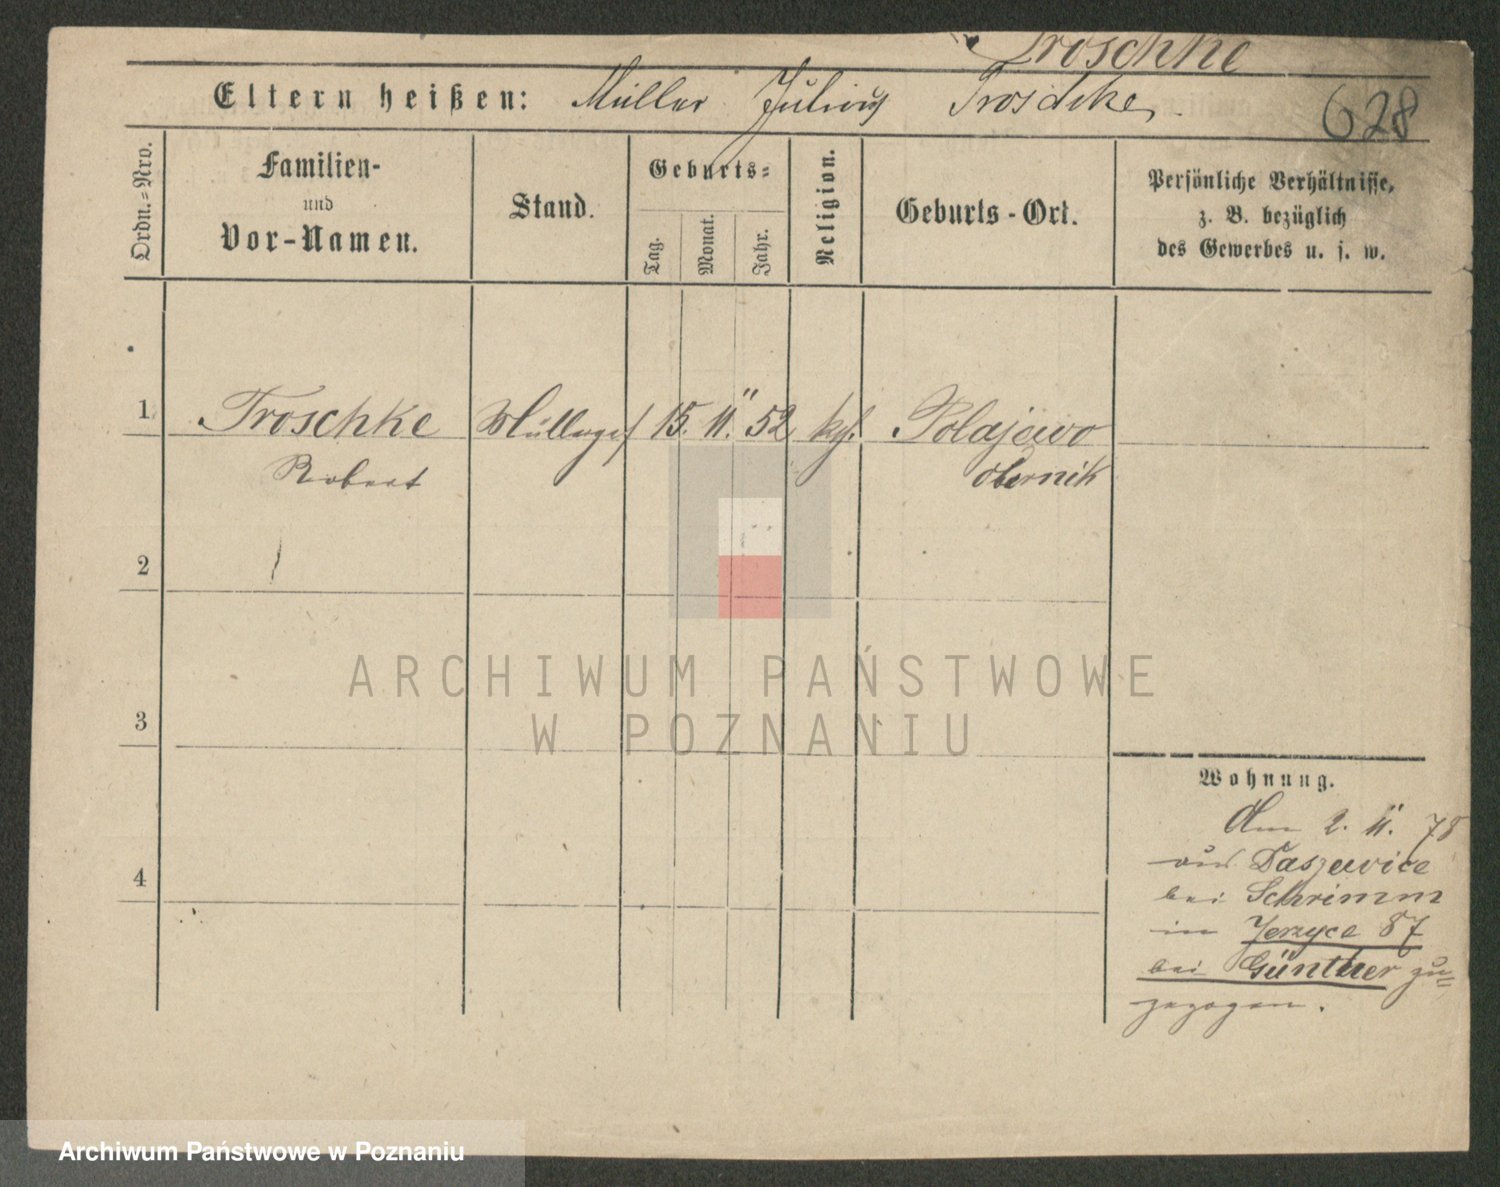 Troschke
Eltern heißen: Müller Julius Troschke
628
Ordn.=Nro.
Familien-
und
Vor-Namen.
Stand.
Geburts=
Tag.
Monat.
Jahr.
Religion.
Geburts-Ort.
Persönliche Verhältnisse,
z. B. bezüglich
des Gewerbes u. s. w.
1 Troschke Müllerges 15. 11. 52 kgl. Polajewo
Robert Obernik
2
3
4
Wohnung.
Am 2. 11. 78
aus Daszewice
bei Schrimm
in Jerzyce 87
bei Günther zu=
gezogen.
ARCHIWUM PAŃSTWOWE
W POZNANIU
Archiwum Państwowe w Poznaniu